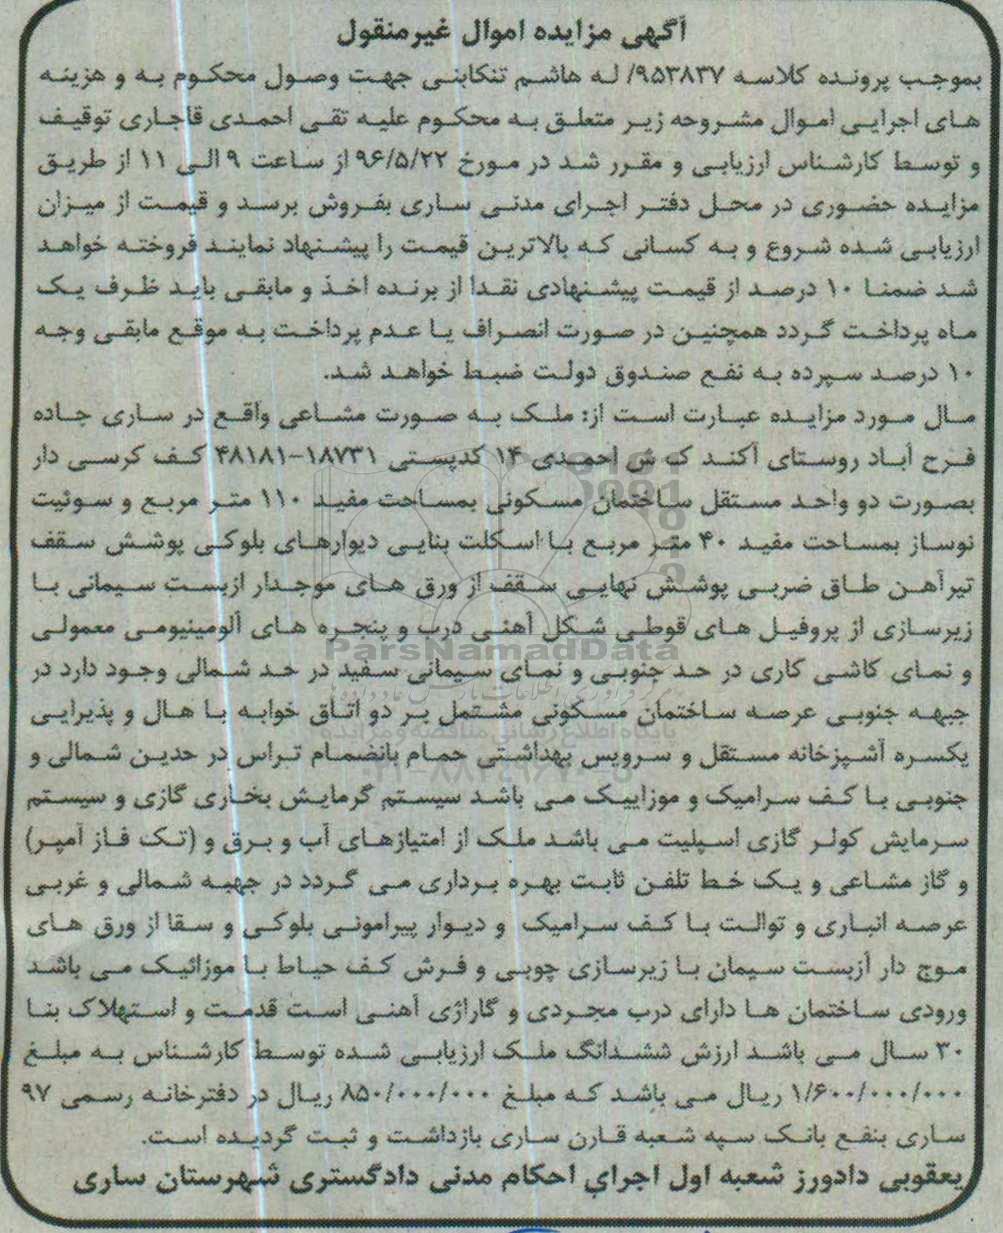 آگهی مزایده اموال غیرمنقول
بموجب پرونده کلاسه ۹۵۳۸۳۷/ له هاشم تنکابنی جهت وصول محکوم به و هزینه
های اجرایی اموال مشروحه زیر متعلق به محکوم علیه تقی احمدی قاجاری توقیف
و توسط کارشناس ارزیابی و مقرر شد در مورخ ۹۶/۵/۲۲ از ساعت ۹ الی ۱۱ از طریق
مزایده حضوری در محل دفتر اجرای مدنی ساری بفروش برسد و قیمت از میزان
ارزیابی شده شروع و به کسانی که بالاترین قیمت را پیشنهاد نمایند فروخته خواهد
شد ضمنا ۱۰ درصد از قیمت پیشنهادی نقدا از برنده اخذ و مابقی باید ظرف یک
ماه پرداخت گردد همچنین در صورت انصراف یا عدم پرداخت به موقع مابقی وجه
۱۰ درصد سپرده به نفع صندوق دولت ضبط خواهد شد.
مال مورد مزایده عبارت است از: ملک به صورت مشاعی واقع در ساری جاده
فرح آباد روستای آکند ک ش احمدی ۱۴ کدپستی ۱۸۷۳۱-۴۸۱۸۱ کف کرسی دار
بصورت دو واحد مستقل ساختمان مسکونی بمساحت مفید ۱۱۰ متر مربع و سوئیت
نوساز بمساحت مفید ۴۰ متر مربع با اسکلت بنایی دیوارهای بلوکی پوشش سقف
تیرآهن طاق ضربی پوشش نهایی سقف از ورق های موجدار ازبست سیمانی با
زیرسازی از پروفیل های قوطی شکل آهنی درب و پنجره های آلومینیومی معمولی
و نمای کاشی کاری در حد جنوبی و نمای سیمانی سفید در حد شمالی وجود دارد در
جبهه جنوبی عرصه ساختمان مسکونی مشتمل بر دو اتاق خوابه با هال و پذیرایی
یکسره آشپزخانه مستقل و سرویس بهداشتی حمام بانضمام تراس در حدین شمالی و
جنوبی با کف سرامیک و موزاییک می باشد سیستم گرمایش بخاری گازی و سیستم
سرمایش کولر گازی اسپلیت می باشد ملک از امتیازهای آب و برق و (تک فاز آمپر)
و گاز مشاعی و یک خط تلفن ثابت بهره برداری می گردد در جهبه شمالی و غربی
عرصه انباری و توالت با کف سرامیک و دیوار پیرامونی بلوکی و سقا از ورق های
موج دار آزبست سیمان با زیرسازی چوبی و فرش کف حیاط با موزائیک می باشد
ورودی ساختمان ها دارای درب مجردی و گاراژی آهنی است قدمت و استهلاک بنا
۳۰ سال می باشد ارزش ششدانگ ملک ارزیابی شده توسط کارشناس به مبلغ
۱/۶۰۰/۰۰۰/۰۰۰ ریال می باشد که مبلغ ۸۵۰/۰۰۰/۰۰۰ ریال در دفترخانه رسمی ۹۷
ساری بنفع بانک سپه شعبه قارن ساری بازداشت و ثبت گردیده است.
یعقوبی دادورز شعبه اول اجرای احکام مدنی دادگستری شهرستان ساری
ParsNamadData
پایگاه اطلاع رسانی مناقصه و مزایده